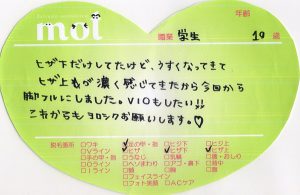 moi
職業 学生
年齢 19 歳
ヒザ下だけしてたけど、うすくなってきて
ヒザ上も が濃く感じてきたから今回から
脚フルにしました。VIOもしたい!!
これからも ヨロシクお願いします。♡
脱毛箇所 □ワキ □足の甲・指 □ヒジ下 □ヒジ上
□Vライン □ヒザ下 □ヒザ上
□手の甲・指 □うなじ □乳輪 □胸
□Oライン □へそまわり □アゴ・鼻下 □背中
□Iライン □顔 □胸 □腹
□フェイスライン
□フォト美顔 □ACケア